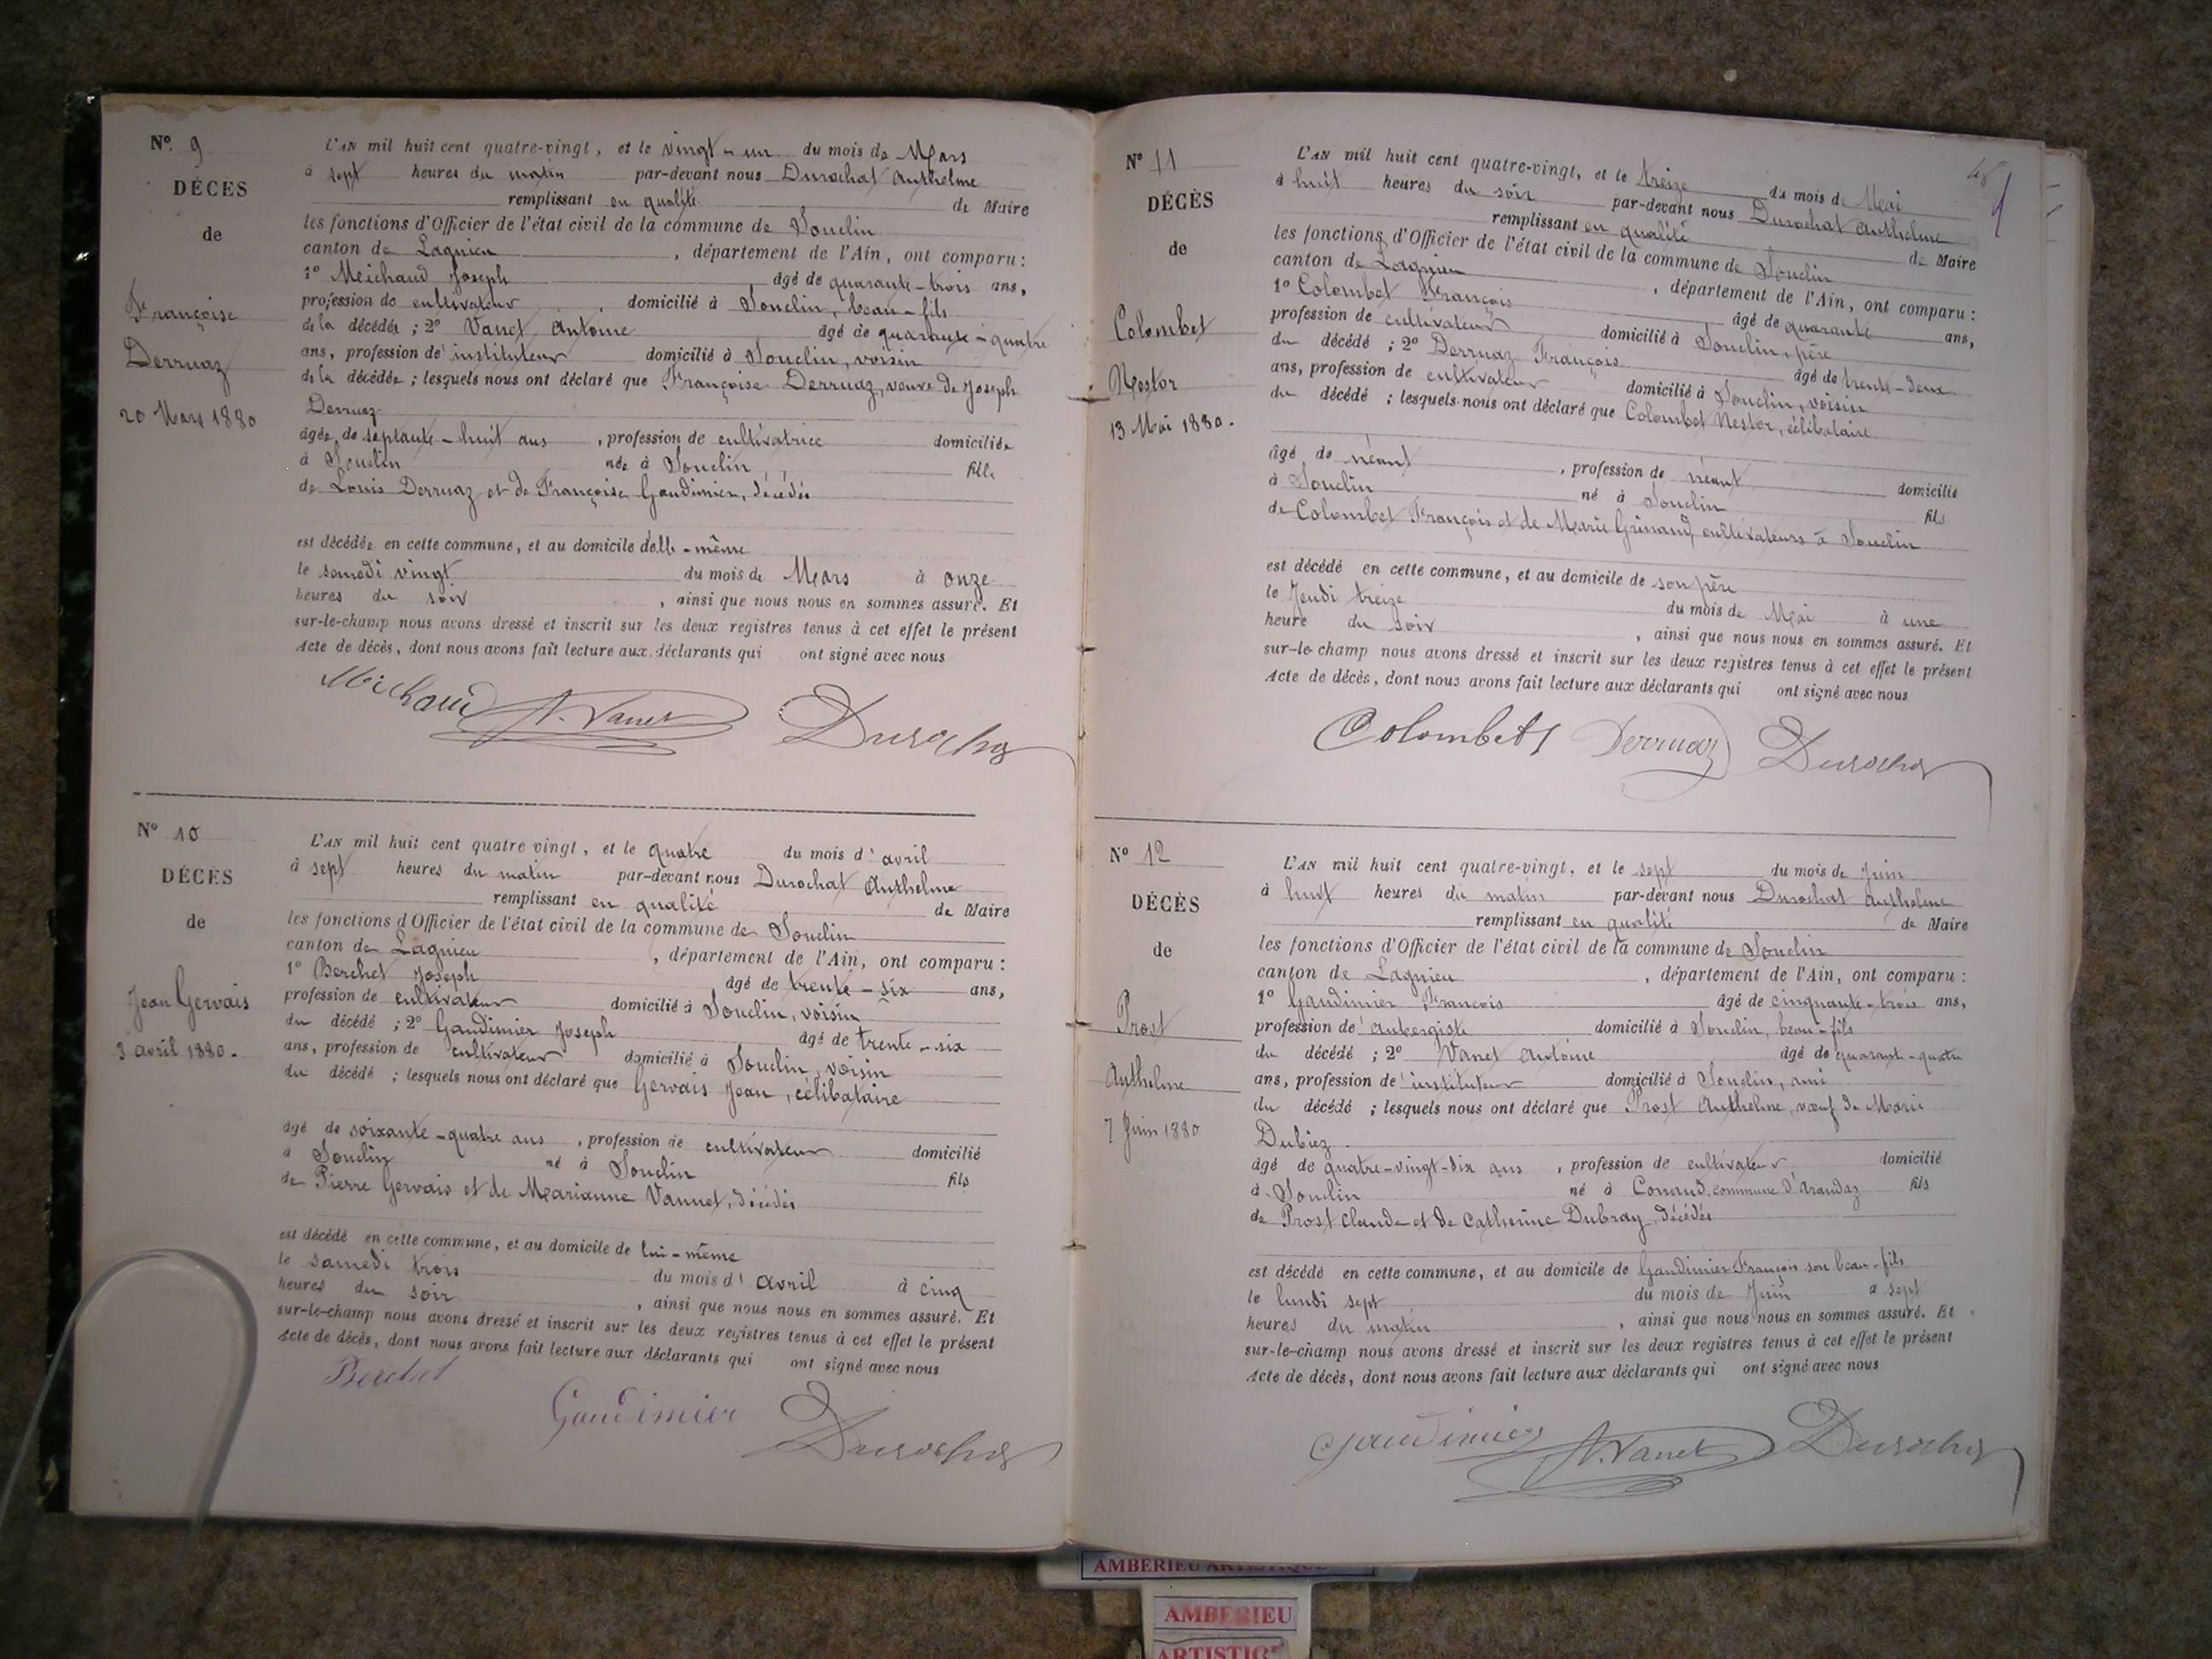 Nº 9
DÉCÈS
de
Françoise
Derruaz
20 Mars 1880
L'AN mil huit cent quatre-vingt, et le vingt-un du mois de Mars
à sept heures du matin par-devant nous Durochat Anthelme
remplissant en qualité de Maire
les fonctions d'Officier de l'état civil de la commune de Souclin
canton de Lagnieu, département de l'Ain, ont comparu :
1º Meichaud Joseph, âgé de quarante-trois ans,
profession de cultivateur, domicilié à Souclin, beau-fils
de la décédée ; 2º Vanet Antoine âgé de quarante-quatre
ans, profession de instituteur domicilié à Souclin, voisin
de la décédée ; lesquels nous ont déclaré que Françoise Derruaz, veuve de Joseph
Derruaz
âgée de septante-huit ans, profession de cultivatrice domiciliée
à Souclin née à Souclin, fille
de Louis Derruaz et de Françoise Gaudimier, décédés
est décédée en cette commune, et au domicile d'elle-même
le samedi vingt du mois de Mars à onze
heures du soir, ainsi que nous nous en sommes assuré. Et
sur-le-champ nous avons dressé et inscrit sur les deux registres tenus à cet effet le présent
Acte de décès, dont nous avons fait lecture aux déclarants qui ont signé avec nous
Michaud A. Vanet Durochat
Nº 10
DÉCÈS
de
Jean Gervais
3 avril 1880.
L'AN mil huit cent quatre vingt, et le quatre du mois d'avril
à sept heures du matin par-devant nous Durochat Anthelme
remplissant en qualité de Maire
les fonctions d'Officier de l'état civil de la commune de Souclin
canton de Lagnieu, département de l'Ain, ont comparu :
1º Berchet Joseph, âgé de trente-six ans,
profession de cultivateur domicilié à Souclin, voisin
du décédé ; 2º Gaudimier Joseph âgé de trente-six
ans, profession de cultivateur domicilié à Souclin, voisin
du décédé ; lesquels nous ont déclaré que Gervais Jean, célibataire
âgé de soixante-quatre ans, profession de cultivateur domicilié
à Souclin né à Souclin fils
de Pierre Gervais et de Marianne Vannet, décédés
est décédé en cette commune, et au domicile de lui-même
le samedi trois du mois d'avril à cinq
heures du soir, ainsi que nous nous en sommes assuré. Et
sur-le-champ nous avons dressé et inscrit sur les deux registres tenus à cet effet le présent
Acte de décès, dont nous avons fait lecture aux déclarants qui ont signé avec nous
Berchet Gaudimier Durochat
Nº 11
DÉCÈS
de
Colombet
Nestor
13 Mai 1880.
L'AN mil huit cent quatre-vingt, et le treize du mois de Mai
à huit heures du soir par-devant nous Durochat Anthelme
remplissant en qualité de Maire
les fonctions d'Officier de l'état civil de la commune de Souclin
canton de Lagnieu, département de l'Ain, ont comparu :
1º Colombet François âgé de quarante ans,
profession de cultivateur domicilié à Souclin, père
du décédé ; 2º Derruaz François âgé de trente-deux
ans, profession de cultivateur domicilié à Souclin, voisin
du décédé ; lesquels nous ont déclaré que Colombet Nestor, célibataire
âgé de néant, profession de néant domicilié
à Souclin né à Souclin fils
de Colombet François et de Marie Grinand, cultivateurs à Souclin
est décédé en cette commune, et au domicile de son père
le Jeudi treize du mois de Mai à une
heure du soir, ainsi que nous nous en sommes assuré. Et
sur-le-champ nous avons dressé et inscrit sur les deux registres tenus à cet effet le présent
Acte de décès, dont nous avons fait lecture aux déclarants qui ont signé avec nous
Colombet Derruaz Durochat
Nº 12
DÉCÈS
de
Prost
Anthelme
7 Juin 1880
L'AN mil huit cent quatre-vingt, et le sept du mois de Juin
à huit heures du matin par-devant nous Durochat Anthelme
remplissant en qualité de Maire
les fonctions d'Officier de l'état civil de la commune de Souclin
canton de Lagnieu, département de l'Ain, ont comparu :
1º Gaudimier François âgé de cinquante-trois ans,
profession de aubergiste domicilié à Souclin, beau-fils
du décédé ; 2º Vanet Antoine âgé de quarante-quatre
ans, profession de instituteur domicilié à Souclin, ami
du décédé ; lesquels nous ont déclaré que Prost Anthelme, veuf de Marie
Dubiez
âgé de quatre-vingt-dix ans, profession de cultivateur domicilié
à Souclin né à Conand, commune d'Arandaz fils
de Prost Claude et de Catherine Dubray, décédés
est décédé en cette commune, et au domicile de Gaudimier François son beau-fils
le lundi sept du mois de Juin à sept
heures du matin, ainsi que nous nous en sommes assuré. Et
sur-le-champ nous avons dressé et inscrit sur les deux registres tenus à cet effet le présent
Acte de décès, dont nous avons fait lecture aux déclarants qui ont signé avec nous
Gaudimier A. Vanet Durochat
AMBERIEU ARTISTIQUE
AMBERIEU
ARTISTIQUE